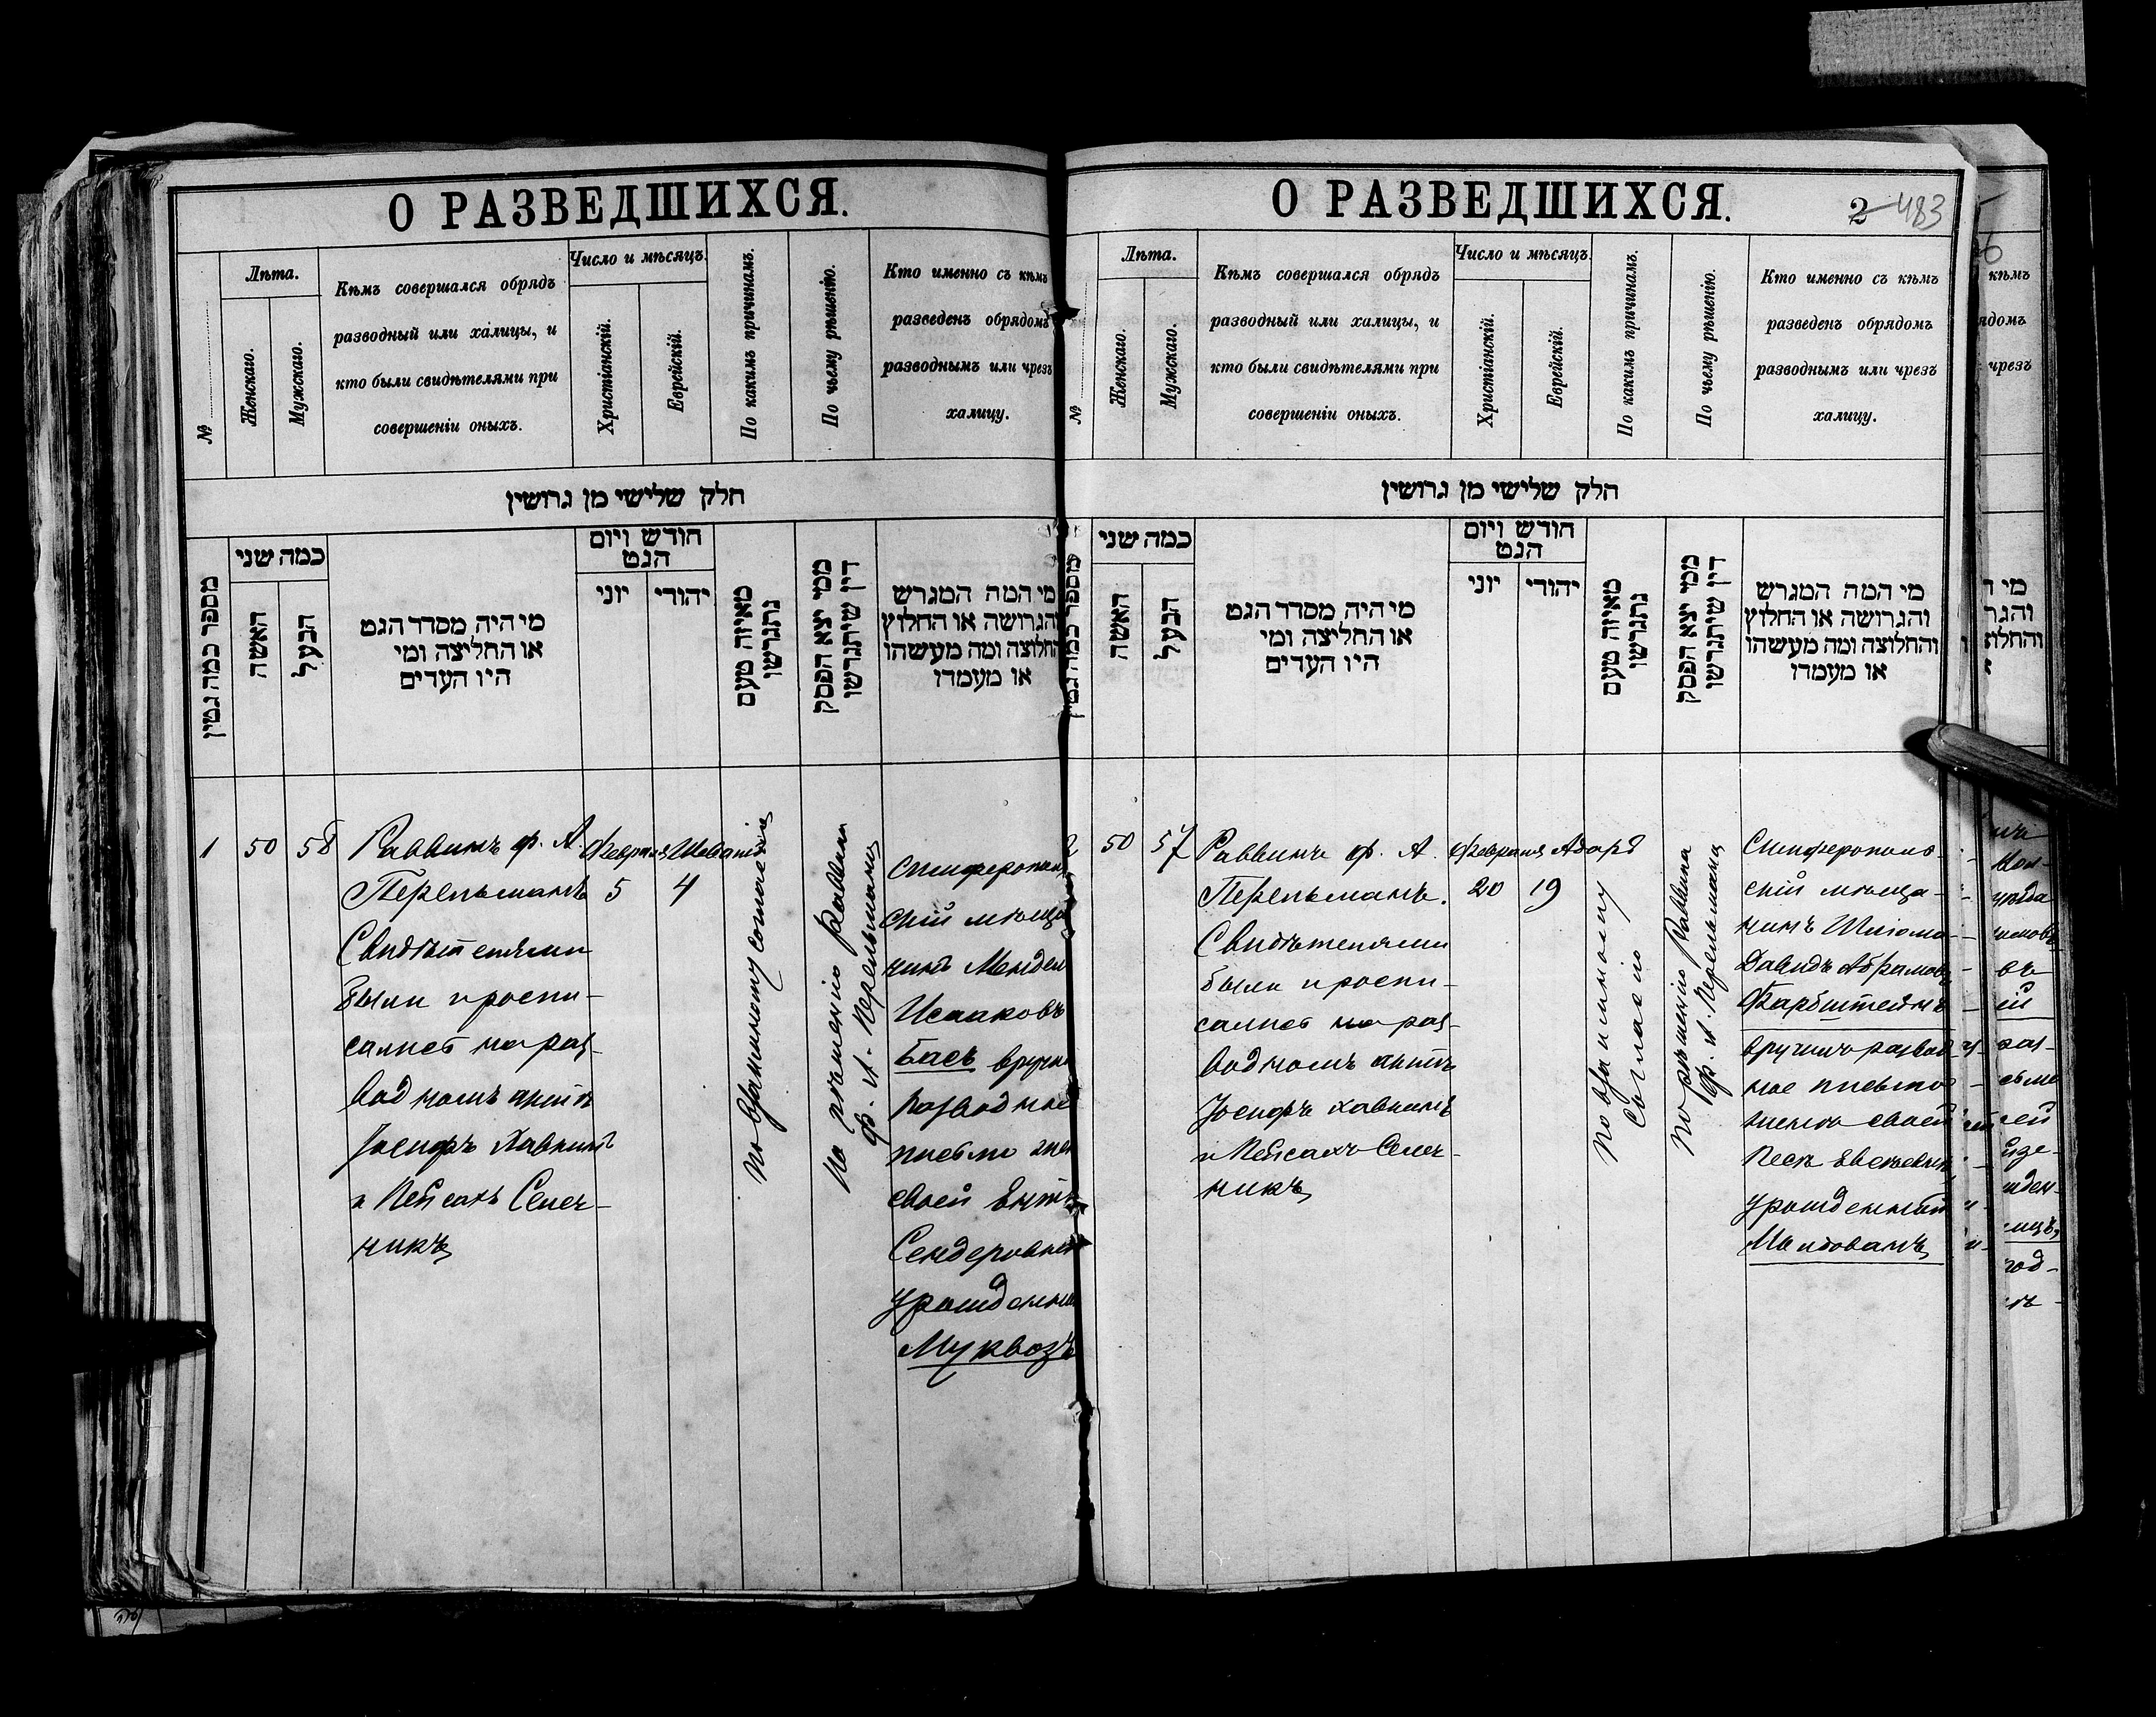 О РАЗВЕДШИХСЯ.
№
Лѣта.
Женскаго.
Мужскаго.
Кѣмъ совершался обрядъ
разводный или халицы, и
кто были свидѣтелями при
совершеніи оныхъ.
Число и мѣсяцъ.
Христіанскій.
Еврейскій.
По какимъ причинамъ.
По чьему рѣшенію.
Кто именно съ кѣмъ
разведенъ обрядомъ
разводнымъ или чрезъ
халицу.
חלק שלישי מן גרושין
מספר כמה גטין
כמה שני
האשה
הבעל
מי היה מסדר הגט
או החליצה ומי
היו העדים
חודש ויום
הגט
יוני
יהודי
מאיזה טעם
נתגרשו
ממי יצא הפסק
דין שיתגרשו
מי המה המגרש
והגרושה או החלוץ
והחלוצה ומה מעשהו
או מעמדו
1
50
58
Раввинъ ф. А.
Перельманъ
Свидѣтелями
были и роспи-
сались на раз-
водномъ актѣ
Іосифъ Хавкинъ
и Пейсахъ Селеч-
никъ
Февраля
5
Шебатъ
4
По взаимному согласію
По рѣшенію Раввина
Ф. А. Перельмана
Симферополь
скій мѣща
нинъ Мендель
Исааковъ
Басъ вручи
разводное
письмо же
своей
Сендеровнѣ
урожденной
Муквозъ
О РАЗВЕДШИХСЯ.
2 483
№
Лѣта.
Женскаго.
Мужскаго.
Кѣмъ совершался обрядъ
разводный или халицы, и
кто были свидѣтелями при
совершеніи оныхъ.
Число и мѣсяцъ.
Христіанскій.
Еврейскій.
По какимъ причинамъ.
По чьему рѣшенію.
Кто именно съ кѣмъ
разведенъ обрядомъ
разводнымъ или чрезъ
халицу.
חלק שלישי מן גרושין
מספר כמה גטין
כמה שני
האשה
הבעל
מי היה מסדר הגט
או החליצה ומי
היו העדים
חודש ויום
הגט
יוני
יהודי
מאיזה טעם
נתגרשו
ממי יצא הפסק
דין שיתגרשו
מי המה המגרש
והגרושה או החלוץ
והחלוצה ומה מעשהו
או מעמדו
2
50
57
Раввинъ ф. А.
Перельманъ.
Свидѣтелями
были и роспи-
сались на раз-
водномъ актѣ
Іосифъ Хавкинъ
и Пейсахъ Селеч-
никъ
Февраля
20
Адаръ
19
По взаимному
согласію
По рѣшенію Раввина
Ф. А. Перельмана
Симферополь-
скій мѣща-
нинъ Шлiома-
Давидъ Абрамовъ
Фарбштейнъ
вручилъ развод-
ное письмо
женѣ своей
Песѣ
урожденной